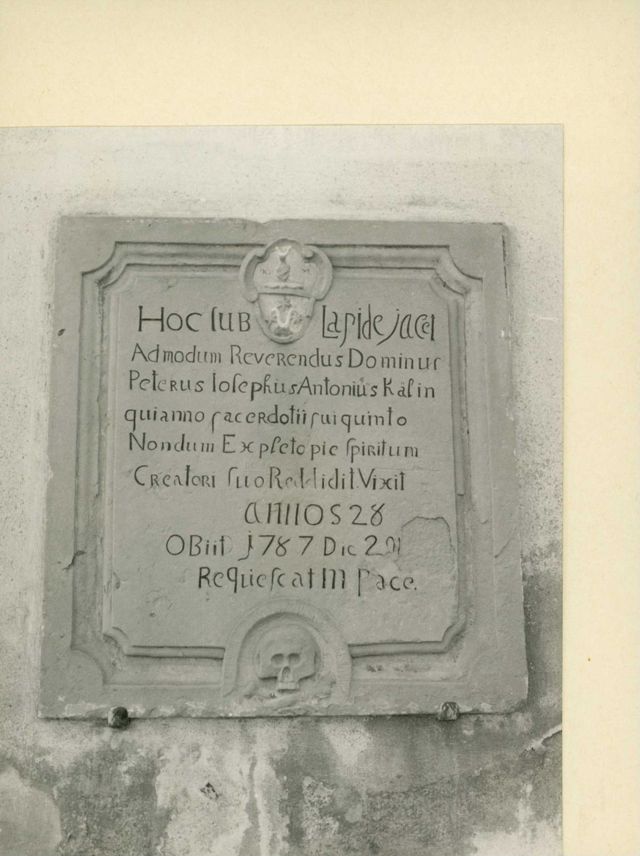 Hoc ſub Lapide jacet
Admodum Reverendus Dominus
Peterus Ioſephus Antonius Kälin
qui anno ſacerdotii ſui quinto
Nondum Expleto pie ſpiritum
Creatori ſuo Reddidit Vixit
annos 28
OBiit 1787 Die
Requieſcat in pace.